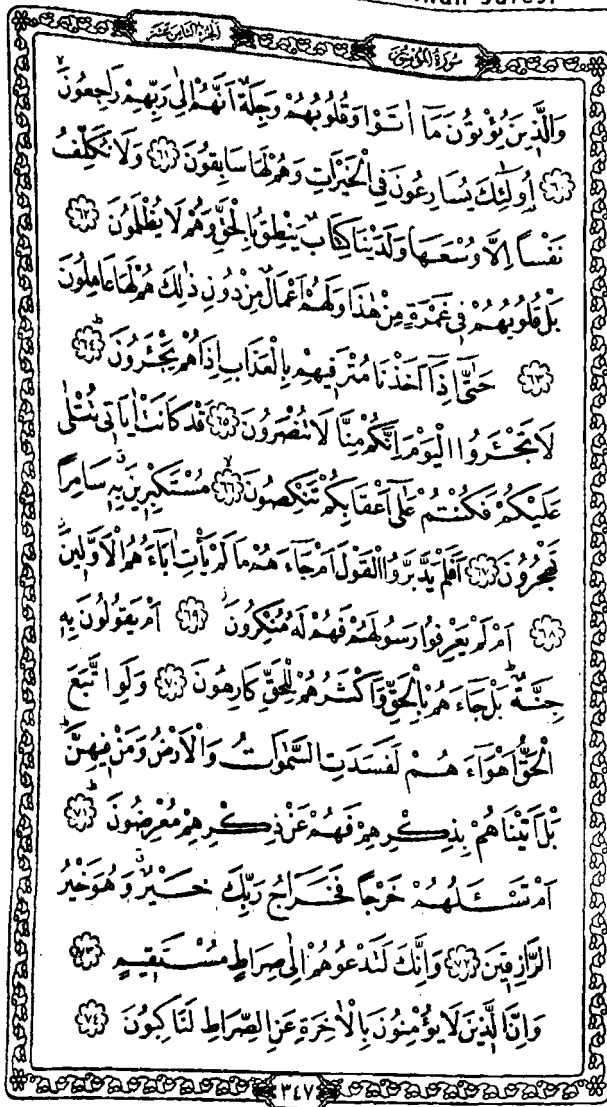 الجزء الثامن عشر
سورة المؤمنون
وَالَّذِينَ يُؤْتُونَ مَٓا اٰتَوْا وَقُلُوبُهُمْ وَجِلَةٌ اَنَّهُمْ اِلٰى رَبِّهِمْ رَاجِعُونَۙ
﴿٦٠﴾ اُو۬لٰٓئِكَ يُسَارِعُونَ فِي الْخَيْرَاتِ وَهُمْ لَهَا سَابِقُونَ ﴿٦١﴾ وَلَا نُكَلِّفُ
نَفْسًا اِلَّا وُسْعَهَا وَلَدَيْنَا كِتَابٌ يَنْطِقُ بِالْحَقِّ وَهُمْ لَا يُظْلَمُونَ ﴿٦٢﴾
بَلْ قُلُوبُهُمْ فِي غَمْرَةٍ مِنْ هٰذَا وَلَهُمْ اَعْمَالٌ مِنْ دُونِ ذٰلِكَ هُمْ لَهَا عَامِلُونَ
﴿٦٣﴾ حَتّٰٓى اِذَٓا اَخَذْنَا مُتْرَفِيهِمْ بِالْعَذَابِ اِذَا هُمْ يَجْـَٔرُونَۜ ﴿٦٤﴾
لَا تَجْـَٔرُوا الْيَوْمَ اِنَّكُمْ مِنَّا لَا تُنْصَرُونَ ﴿٦٥﴾ قَدْ كَانَتْ اٰيَاتِي تُتْلٰى
عَلَيْكُمْ فَكُنْتُمْ عَلٰٓى اَعْقَابِكُمْ تَنْكِصُونَۙ ﴿٦٦﴾ مُسْتَكْبِرِينَۗ بِهِ سَامِرًا
تَهْجُرُونَ ﴿٦٧﴾ اَفَلَمْ يَدَّبَّرُوا الْقَوْلَ اَمْ جَٓاءَهُمْ مَا لَمْ يَأْتِ اٰبَٓاءَهُمُ الْاَوَّلِينَۘ
﴿٦٨﴾ اَمْ لَمْ يَعْرِفُوا رَسُولَهُمْ فَهُمْ لَهُ مُنْكِرُونَۘ ﴿٦٩﴾ اَمْ يَقُولُونَ بِهِ
جِنَّةٌۜ بَلْ جَٓاءَهُمْ بِالْحَقِّ وَاَكْثَرُهُمْ لِلْحَقِّ كَارِهُونَ ﴿٧٠﴾ وَلَوِ اتَّبَعَ
الْحَقُّ اَهْوَٓاءَهُمْ لَفَسَدَتِ السَّمٰوَاتُ وَالْاَرْضُ وَمَنْ فِيهِنَّۜ
بَلْ اَتَيْنَاهُمْ بِذِكْرِهِمْ فَهُمْ عَنْ ذِكْرِهِمْ مُعْرِضُونَۜ ﴿٧١﴾
اَمْ تَسْـَٔلُهُمْ خَرْجًا فَخَرَاجُ رَبِّكَ خَيْرٌۗ وَهُوَ خَيْرُ
الرَّازِقِينَ ﴿٧٢﴾ وَاِنَّكَ لَتَدْعُوهُمْ اِلٰى صِرَاطٍ مُسْتَقِيمٍ ﴿٧٣﴾
وَاِنَّ الَّذِينَ لَا يُؤْمِنُونَ بِالْاٰخِرَةِ عَنِ الصِّرَاطِ لَنَاكِبُونَ ﴿٧٤﴾
٣٤٧